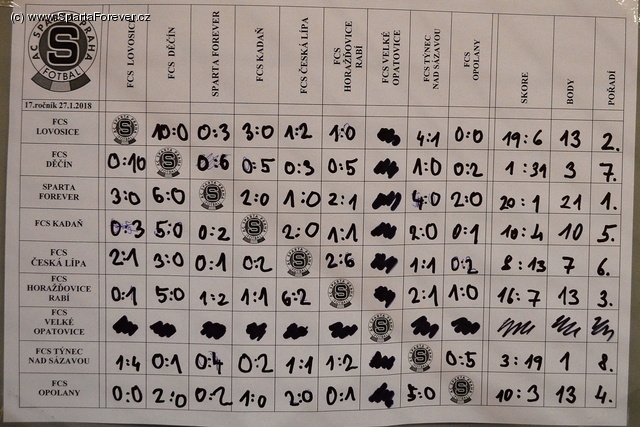 (c) www.SpartaForever.cz
AC SPARTA PRAHA
FOTBAL
S
17.ročník 27.1.2018
FCS LOVOSICE
FCS DĚČÍN
SPARTA FOREVER
FCS KADAŇ
FCS ČESKÁ LÍPA
FCS HORAŽĎOVICE RABÍ
FCS VELKÉ OPATOVICE
FCS TÝNEC NAD SÁZAVOU
FCS OPOLANY
SKORE
BODY
POŘADÍ
FCS LOVOSICE 10:0 0:3 3:0 1:2 1:0 4:1 0:0 19:6 13 2.
FCS DĚČÍN 0:10 0:6 0:5 0:3 0:5 1:0 0:2 1:31 3 7.
SPARTA FOREVER 3:0 6:0 2:0 1:0 2:1 4:0 2:0 20:1 21 1.
FCS KADAŇ 0:3 5:0 0:2 2:0 1:1 2:0 0:1 10:4 10 5.
FCS ČESKÁ LÍPA 2:1 3:0 0:1 0:2 2:6 1:1 0:2 8:13 7 6.
FCS HORAŽĎOVICE RABÍ 0:1 5:0 1:2 1:1 6:2 2:1 1:0 16:7 13 3.
FCS VELKÉ OPATOVICE
FCS TÝNEC NAD SÁZAVOU 1:4 0:1 0:4 0:2 1:1 1:2 0:5 3:19 1 8.
FCS OPOLANY 0:0 2:0 0:2 1:0 2:0 0:1 5:0 10:3 13 4.